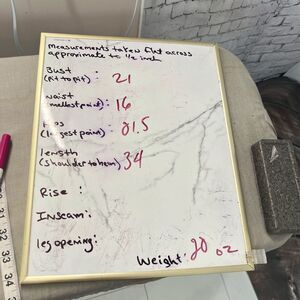 measurements taken flat across
approximate to 1/2 inch
Bust :
(Pit to pit) 21
waist
(smallest point) : 16
Hips :
(largest point) 21.5
length
(shoulder to hem) : 34
Rise :
Inseam :
leg opening :
Weight : 20 oz
31 32 33 34